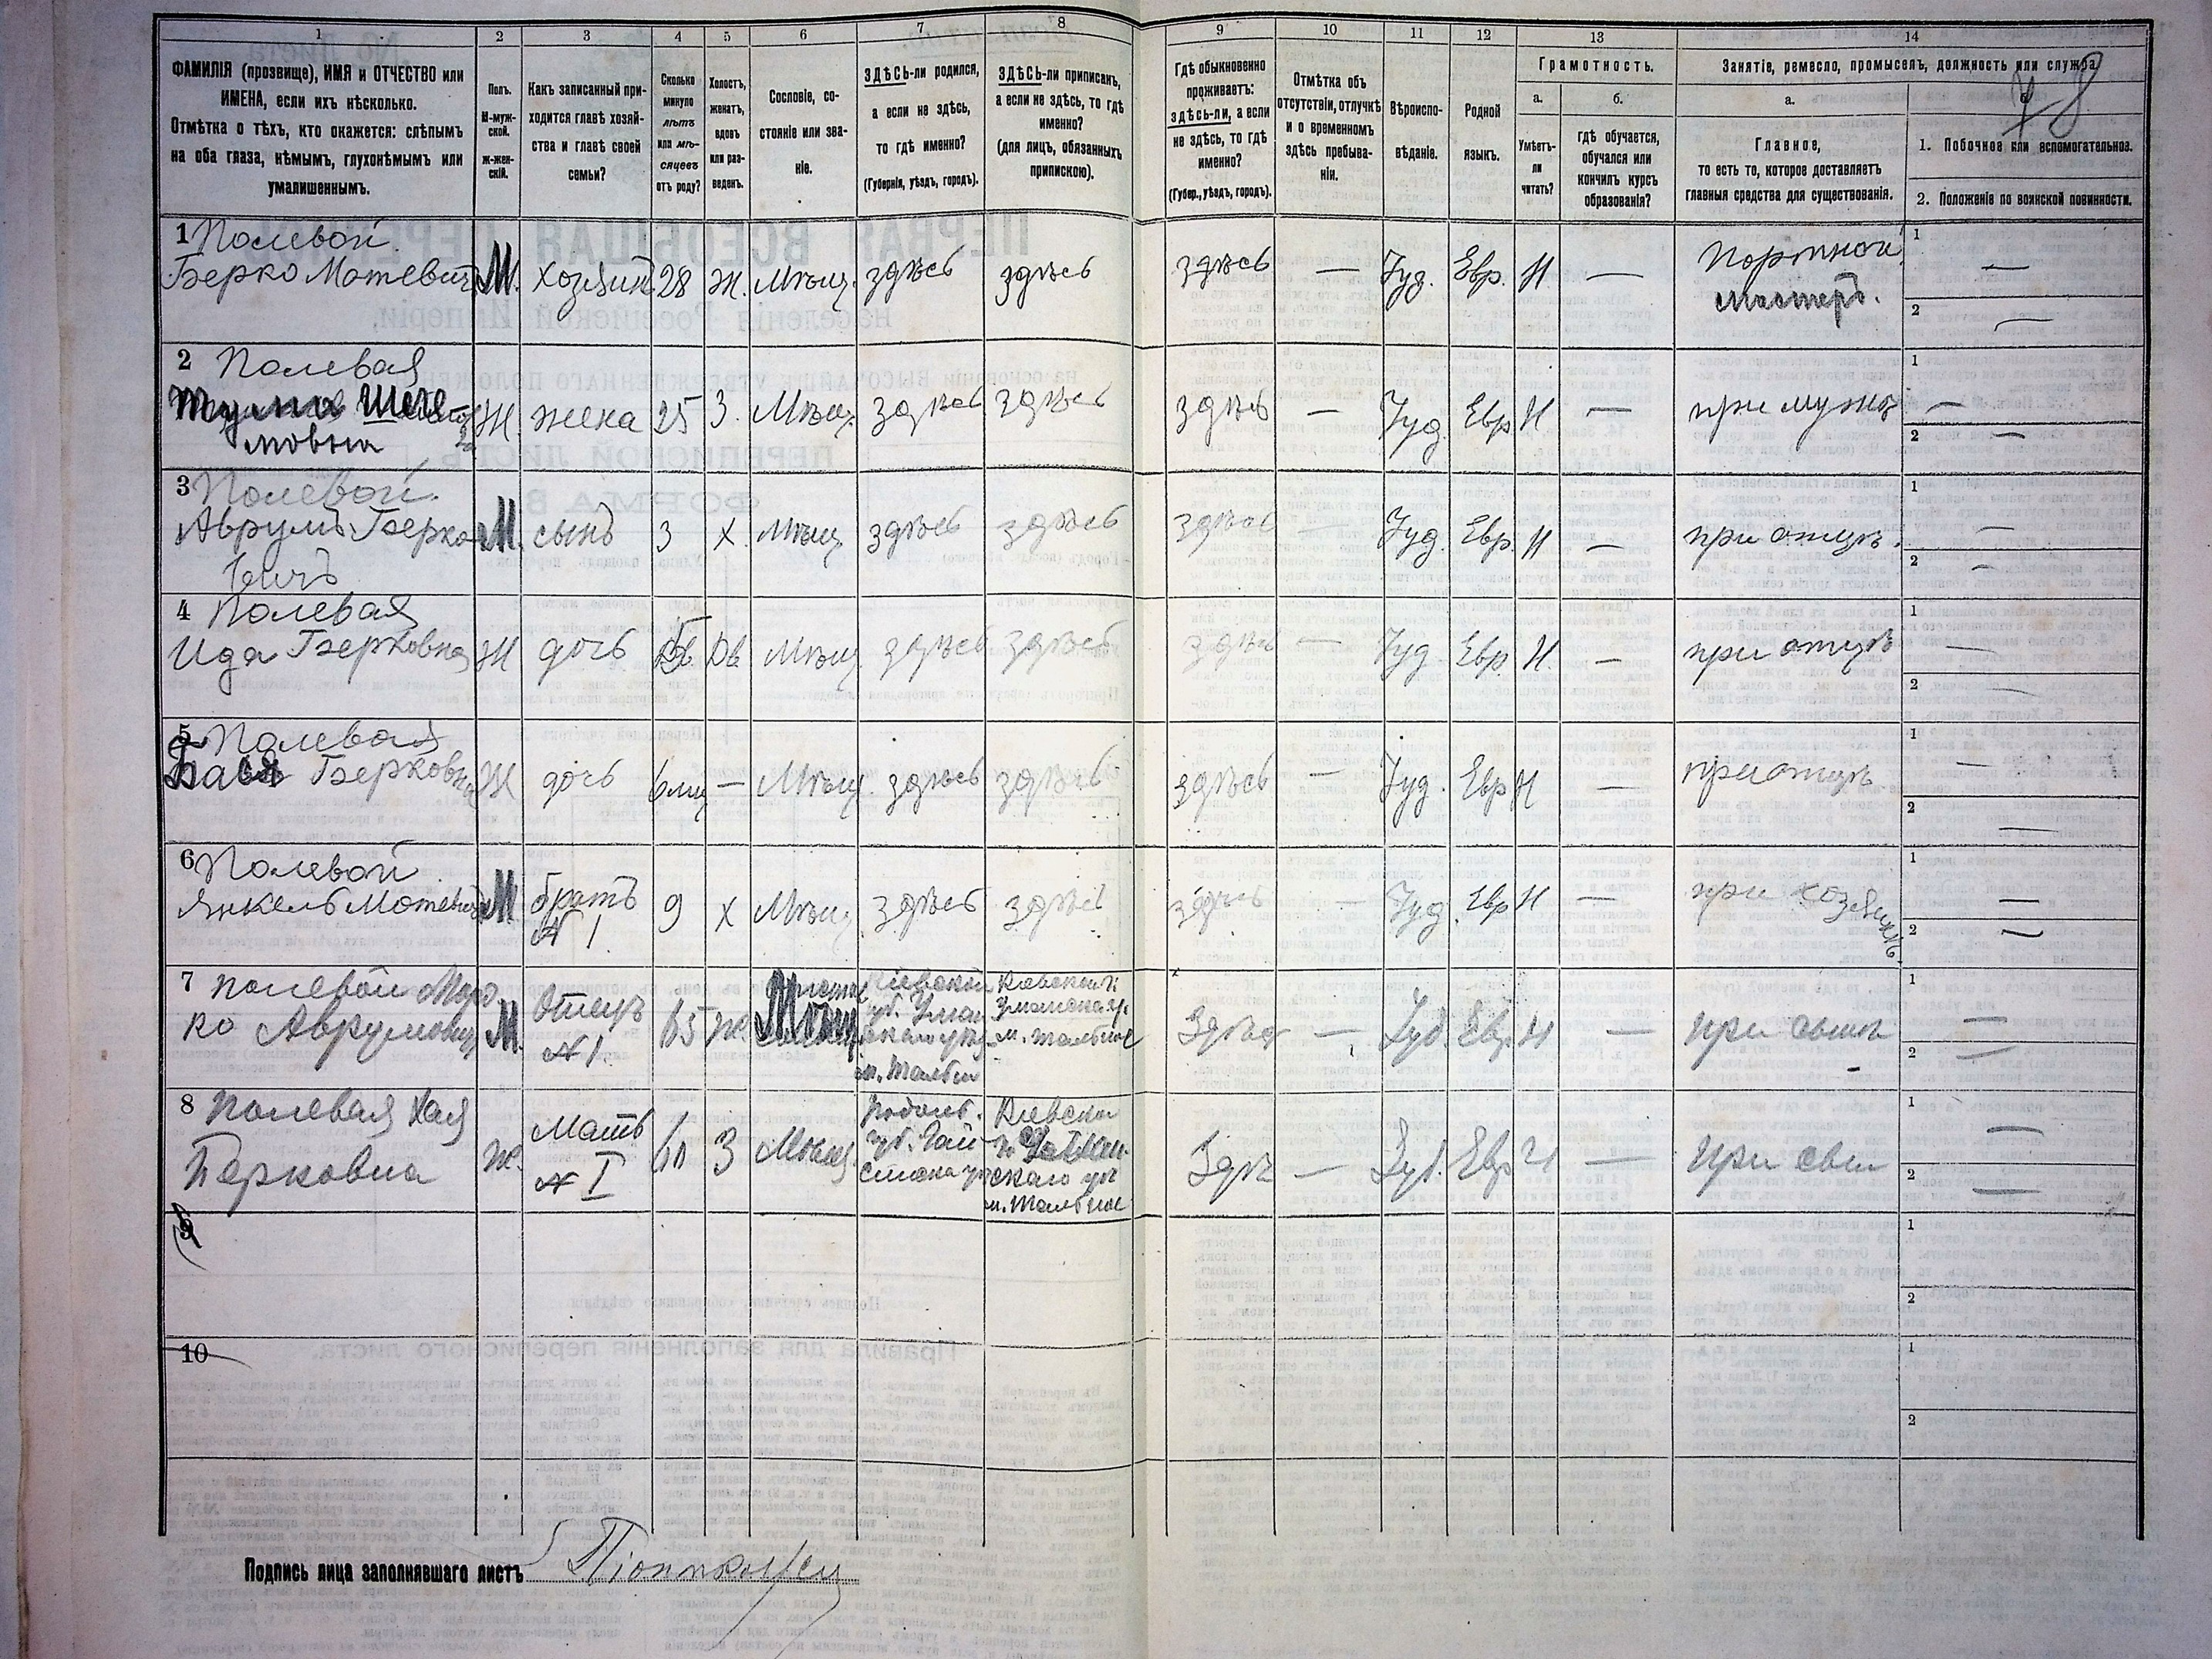 1 2 3 4 5 6 7 8 9 10 11 12 13 14
ФАМИЛІЯ (прозвище), ИМЯ и ОТЧЕСТВО или
ИМЕНА, если ихъ нѣсколько.
Отмѣтка о тѣхъ, кто окажется: слѣпымъ
на оба глаза, нѣмымъ, глухонѣмымъ или
умалишеннымъ.
Полъ.
М-муж-
ской.
Ж-жен-
скій.
Какъ записанный при-
ходится главѣ хозяй-
ства и главѣ своей
семьи?
Сколько
минуло
лѣтъ
или мѣ-
сяцевъ
отъ роду?
Холостъ,
женатъ,
вдовъ
или раз-
веденъ.
Сословіе, со-
стояніе или зва-
ніе.
ЗДѢСЬ-ли родился,
а если не здѣсь,
то гдѣ именно?
(Губернія, уѣздъ, городъ).
ЗДѢСЬ-ли приписанъ,
а если не здѣсь, то гдѣ
именно?
(для лицъ, обязанныхъ
припискою).
Гдѣ обыкновенно
проживаетъ:
здѣсь-ли, а если
не здѣсь, то гдѣ
именно?
(Губер., уѣздъ, городъ).
Отмѣтка объ
отсутствіи, отлучкѣ
и о временномъ
здѣсь пребыва-
ніи.
Вѣроиспо-
вѣданіе.
Родной
языкъ.
Грамотность.
а.
Умѣетъ-
ли
читать?
б.
гдѣ обучается,
обучался или
кончилъ курсъ
образованія?
Занятіе, ремесло, промыселъ, должность или служба.
а.
Главное,
то есть то, которое доставляетъ
главныя средства для существованія.
1. Побочное или вспомогательное.
2. Положеніе по воинской повинности.
8
1 Полевой
Берко Мотевичъ М. хозяинъ 28 ж. Мѣщ. здѣсь здѣсь здѣсь — Іуд. Евр. Н — Портной
мастеръ. 1 — 2 —
2 Полевая
мовна Ж. жена 25 З. Мѣщ. здѣсь здѣсь здѣсь — Іуд. Евр. Н — при мужѣ 1 — 2 —
3 Полевой
Аврумъ Берко-
вичъ М. сынъ 3 х. Мѣщ. здѣсь здѣсь здѣсь — Іуд. Евр. Н — при отцѣ. 1 — 2 —
4 Полевая
Ида Берковна Ж дочь Дв Мѣщ. здѣсь здѣсь здѣсь — Іуд. Евр. Н — при отцѣ 1 — 2 —
5 Полевая
Бася Берковна Ж дочь 6 мц — Мѣщ. здѣсь здѣсь здѣсь — Іуд. Евр Н — при отцѣ 1 — 2 —
6 Полевой
Янкель Мотевичъ М братъ
№ 1 9 х Мѣщ. здѣсь здѣсь здѣсь — Іуд. Евр Н — при хозяинѣ 1 — 2 —
7 Полевой
Аврумовичъ М. Отецъ
№ 1. 65 ж. Мѣщ Кіевской
губ. Уман
скаго у.
м. Тальн
Кіевской
Уманскаго у.
м. Тальное
— Іуд. Евр. Н — при сынѣ 1 — 2 —
8 Полевая Хая
Берковна ж. Мать
№ I 60 З Мѣщ. Подоль.
губ. Гай-
Кіевской
скаго у.
м. Тальное
— Іуд. Евр Н — при сын 1 — 2 —
9 1 2
10 1 2
Подпись лица заполнявшаго листъ